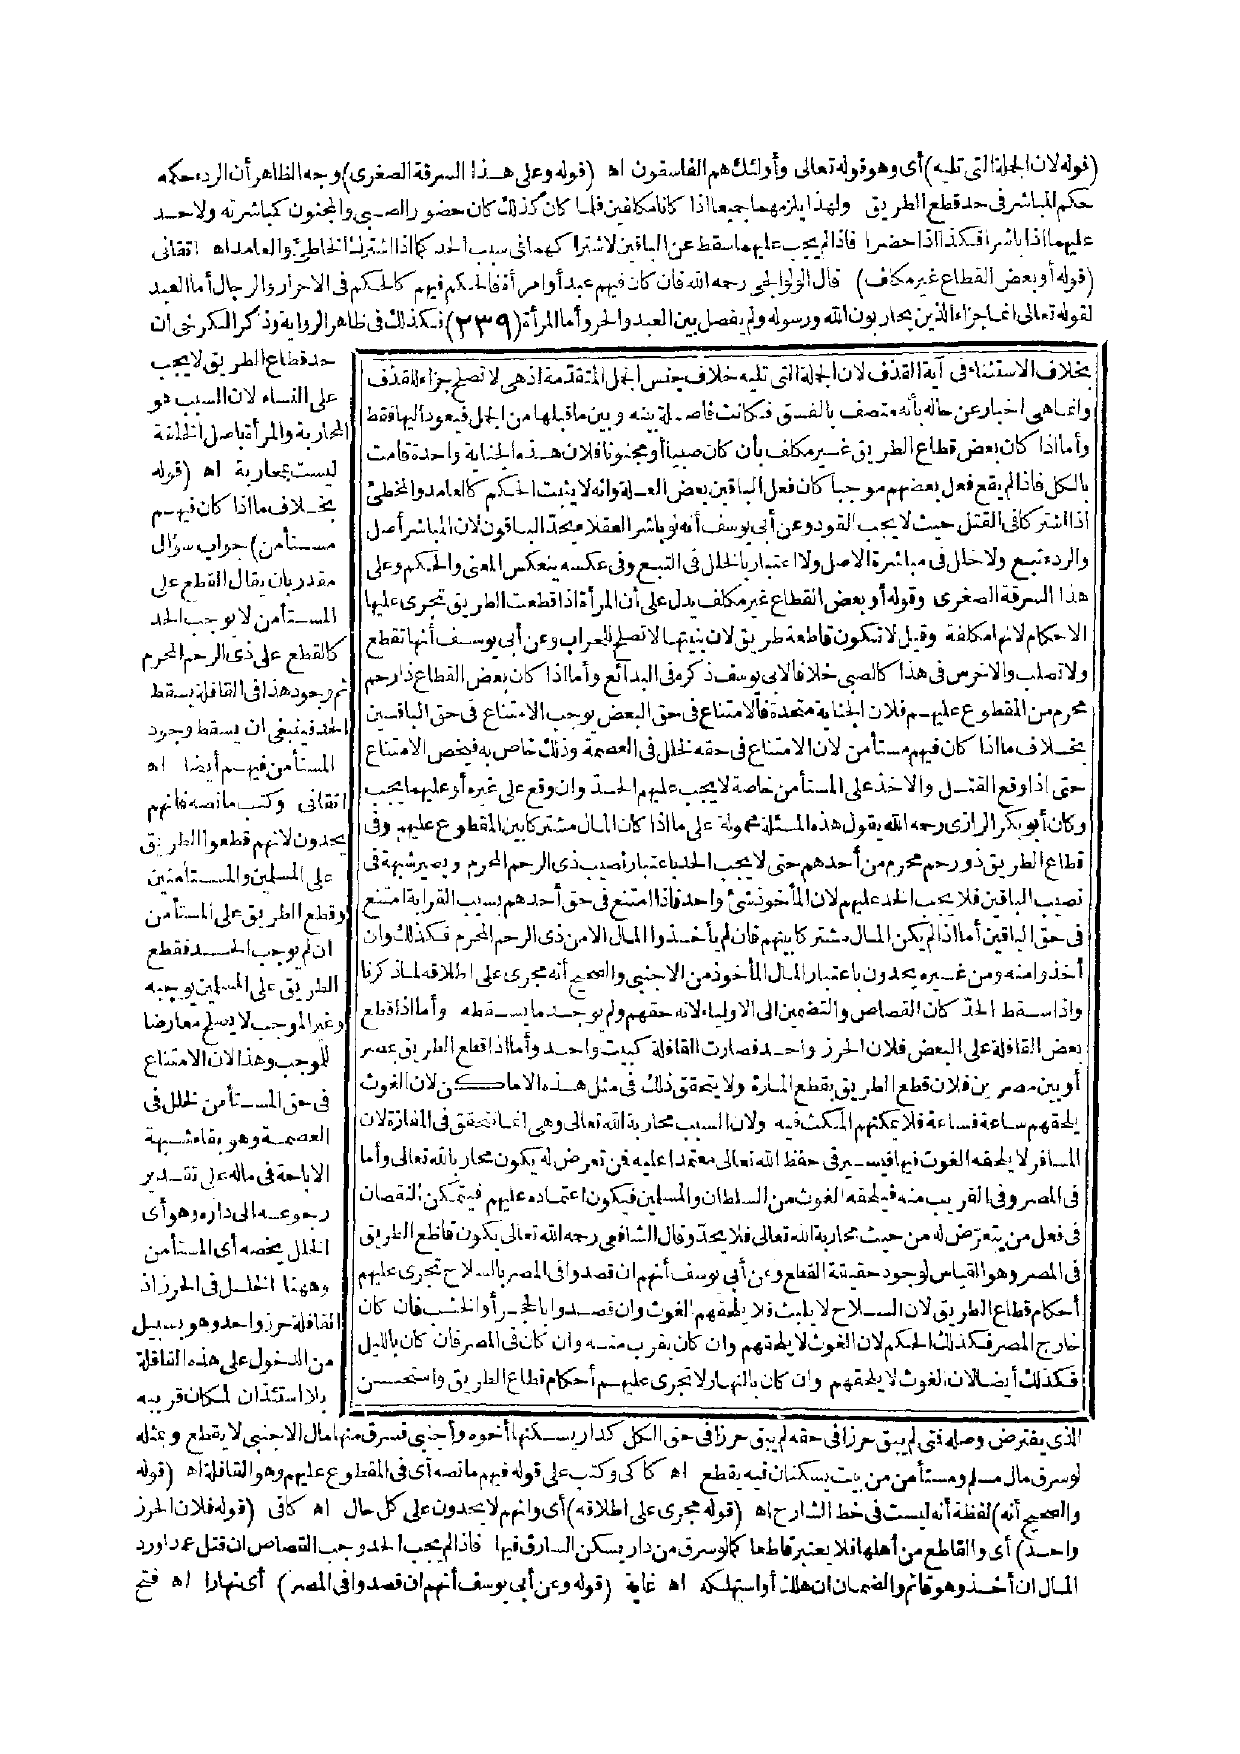 (قوله لان الجملة التى تليه) أى وهو قوله تعالى وأولئك هم الفاسقون اه (قوله وعلى هذا السرقة الصغرى) وجه الظاهر أن الردء حكمه
حكم المباشر فى حد قطع الطريق ولهذا يلزمهما جميعا اذا كانا مكلفين فلما كان كذلك كان حضور الصبى والمجنون كمباشرته ولا حد
عليهما اذا باشرا فكذا اذا حضرا فاذا لم يجب عليهما سقط عن الباقين لاشتراكهما فى سبب الحد كما اذا اشترك الخاطئ والعامد اه اتقانى
(قوله أو بعض القطاع غير مكلف) قال الولوالجى رحمه الله فان كان فيهم عبد أو امرأة فالحكم فيهم كالحكم فى الاحرار والرجال أما العبد
لقوله تعالى انما جزاء الذين يحاربون الله ورسوله ولم يفصل بين العبد والحر وأما المرأة (٢٣٩) فكذلك فى ظاهر الرواية وذكر الكرخى ان
حد قطاع الطريق لا يجب
على النساء لان السبب هو
المحاربة والمرأة باصل الخلقة
ليست بمحاربة اه (قوله
بخلاف ما اذا كان فيهم
مستأمن) جواب سؤال
مقدر بان يقال القطع على
المستأمن لا يوجب الحد
كالقطع على ذى الرحم المحرم
ثم وجود هذا فى القافلة يسقط
الحد فينبغى ان يسقط وجود
المستأمن فيهم أيضا اه
اتقانى وكتب ما نصه فانهم
يحدون لانهم قطعوا الطريق
على المسلمين والمستأمنين
وقطع الطريق على المستأمن
ان لم يوجب الحد فقطع
الطريق على المسلمين يوجبه
وغير الموجب لا يصلح معارضا
للموجب وهذا لان الامتناع
فى حق المستأمن لخلل فى
العصمة وهو بقاء شبهة
الاباحة فى ماله على تقدير
رجوعه الى داره وهو أى
الخلل يخصه أى المستأمن
وههنا الخلل فى الحرز اذ
القافلة حرز واحد وهو بسبيل
من الدخول على هذه القافلة
بلا استئذان لمكان قريبه
بخلاف الاستثناء فى آية القذف لان الجملة التى تليه خلاف جنس الجمل المتقدمة اذ هى لا تصلح جزاء للقذف
وانما هى اخبار عن حاله بأنه متصف بالفسق فكانت فاصلة بينه وبين ما قبلها من الجمل فيعود اليها فقط
وأما اذا كان بعض قطاع الطريق غير مكلف بأن كان صبيا أو مجنونا فلان هذه الجناية واحدة قامت
بالكل فاذا لم يقع فعل بعضهم موجبا كان فعل الباقين بعض العلة وانه لا يثبت الحكم كالعامد والمخطئ
اذا اشتركا فى القتل حيث لا يجب القود وعن أبى يوسف أنه لو باشر العقلاء يحد الباقون لان المباشر أصل
والردء تبع ولا خلل فى مباشرة الاصل ولا اعتبار بالخلل فى التبع وفى عكسه ينعكس المعنى والحكم وعلى
هذا السرقة الصغرى وقوله أو بعض القطاع غير مكلف يدل على أن المرأة اذا قطعت الطريق تجرى عليها
الاحكام لانها مكلفة وقيل لا تكون قاطعة طريق لان بنيتها لا تصلح للحراب وعن أبى يوسف أنها تقطع
ولا تصلب والاخرس فى هذا كالصبى خلافا لابى يوسف ذكره فى البدائع وأما اذا كان بعض القطاع ذا رحم
محرم من المقطوع عليهم فلان الجناية متحدة فالامتناع فى حق البعض يوجب الامتناع فى حق الباقين
بخلاف ما اذا كان فيهم مستأمن لان الامتناع فى حقه لخلل فى العصمة وذلك خاص به فيخص الامتناع
حتى اذا وقع القتل والاخذ على المستأمن خاصة لا يجب عليهم الحد وان وقع على غيره أو عليهما يجب
وكان أبو بكر الرازى رحمه الله يقول هذه المسئلة محمولة على ما اذا كان المال مشتركا بين المقطوع عليهم وفى
قطاع الطريق ذو رحم محرم من أحدهم حتى لا يجب الحد باعتبار نصيب ذى الرحم المحرم ويصير شبهة فى
نصيب الباقين فلا يجب الحد عليهم لان المأخوذ شئ واحد فاذا امتنع فى حق أحدهم بسبب القرابة امتنع
فى حق الباقين أما اذا لم يكن المال مشتركا بينهم فان لم يأخذوا المال الا من ذى الرحم المحرم فكذلك وان
أخذوا منه ومن غيره يحدون باعتبار المال المأخوذ من الاجنبى والصحيح أنه مجرى على اطلاقه لما ذكرنا
واذا سقط الحد كان القصاص والتضمين الى الاولياء لانه حقهم ولم يوجد ما يسقطه وأما اذا قطع
بعض القافلة على البعض فلان الحرز واحد فصارت القافلة كبيت واحد وأما اذا قطع الطريق بمصر
أو بين مصرين فلان قطع الطريق بقطع المارة ولا يتحقق ذلك فى مثل هذه الاماكن لان الغوث
يلحقهم ساعة فساعة فلا يمكنهم المكث فيه ولان السبب محاربة الله تعالى وهى انما تتحقق فى المفازة لان
المسافر لا يلحقه الغوث فيها فيسير فى حفظ الله تعالى معتمدا عليه فمن تعرض له يكون محاربا لله تعالى وأما
فى المصر وفى القريب منه فيلحقه الغوث من السلطان والمسلمين فيكون اعتماده عليهم فيتمكن النقصان
فى فعل من يتعرض له من حيث محاربة الله تعالى فلا يحد وقال الشافعى رحمه الله تعالى يكون قاطع الطريق
فى المصر وهو القياس لوجود حقيقة القطع وعن أبى يوسف أنهم ان قصدوا فى المصر بالسلاح تجرى عليهم
أحكام قطاع الطريق لان السلاح لا يلبث فلا يلحقهم الغوث وان قصدوا بالحجر أو الخشب فان كان
خارج المصر فكذلك الحكم لان الغوث لا يلحقهم وان كان بقرب منه وان كان فى المصر فان كان بالليل
فكذلك أيضا لان الغوث لا يلحقهم وان كان بالنهار لا تجرى عليهم أحكام قطاع الطريق واستحسن
الذى يفترض وصله فمتى لم يبق حرزا فى حقه لم يبق حرزا فى حق الكل كدار يسكنها أخوه وأجنبى فسرق منها مال الاجنبى لا يقطع وبمثله
لو سرق مال مسلم ومستأمن من بيت يسكنان فيه يقطع اه كاكى وكتب على قوله فيهم ما نصه أى فى المقطوع عليهم وهو القافلة اه (قوله
والصحيح أنه) لفظة أنه ليست فى خط الشارح اه (قوله مجرى على اطلاقه) أى وانهم لا يحدون على كل حال اه كافى (قوله فلان الحرز
واحد) أى والقاطع من أهلها فلا يعتبر قاطعا كما لو سرق من دار يسكن السارق فيها فاذا لم يجب الحد وجب القصاص ان قتل عمدا ورد
المال ان أخذ وهو قائم والضمان ان هلك أو استهلكه اه غاية (قوله وعن أبى يوسف أنهم ان قصدوا فى المصر) أى نهارا اه فتح